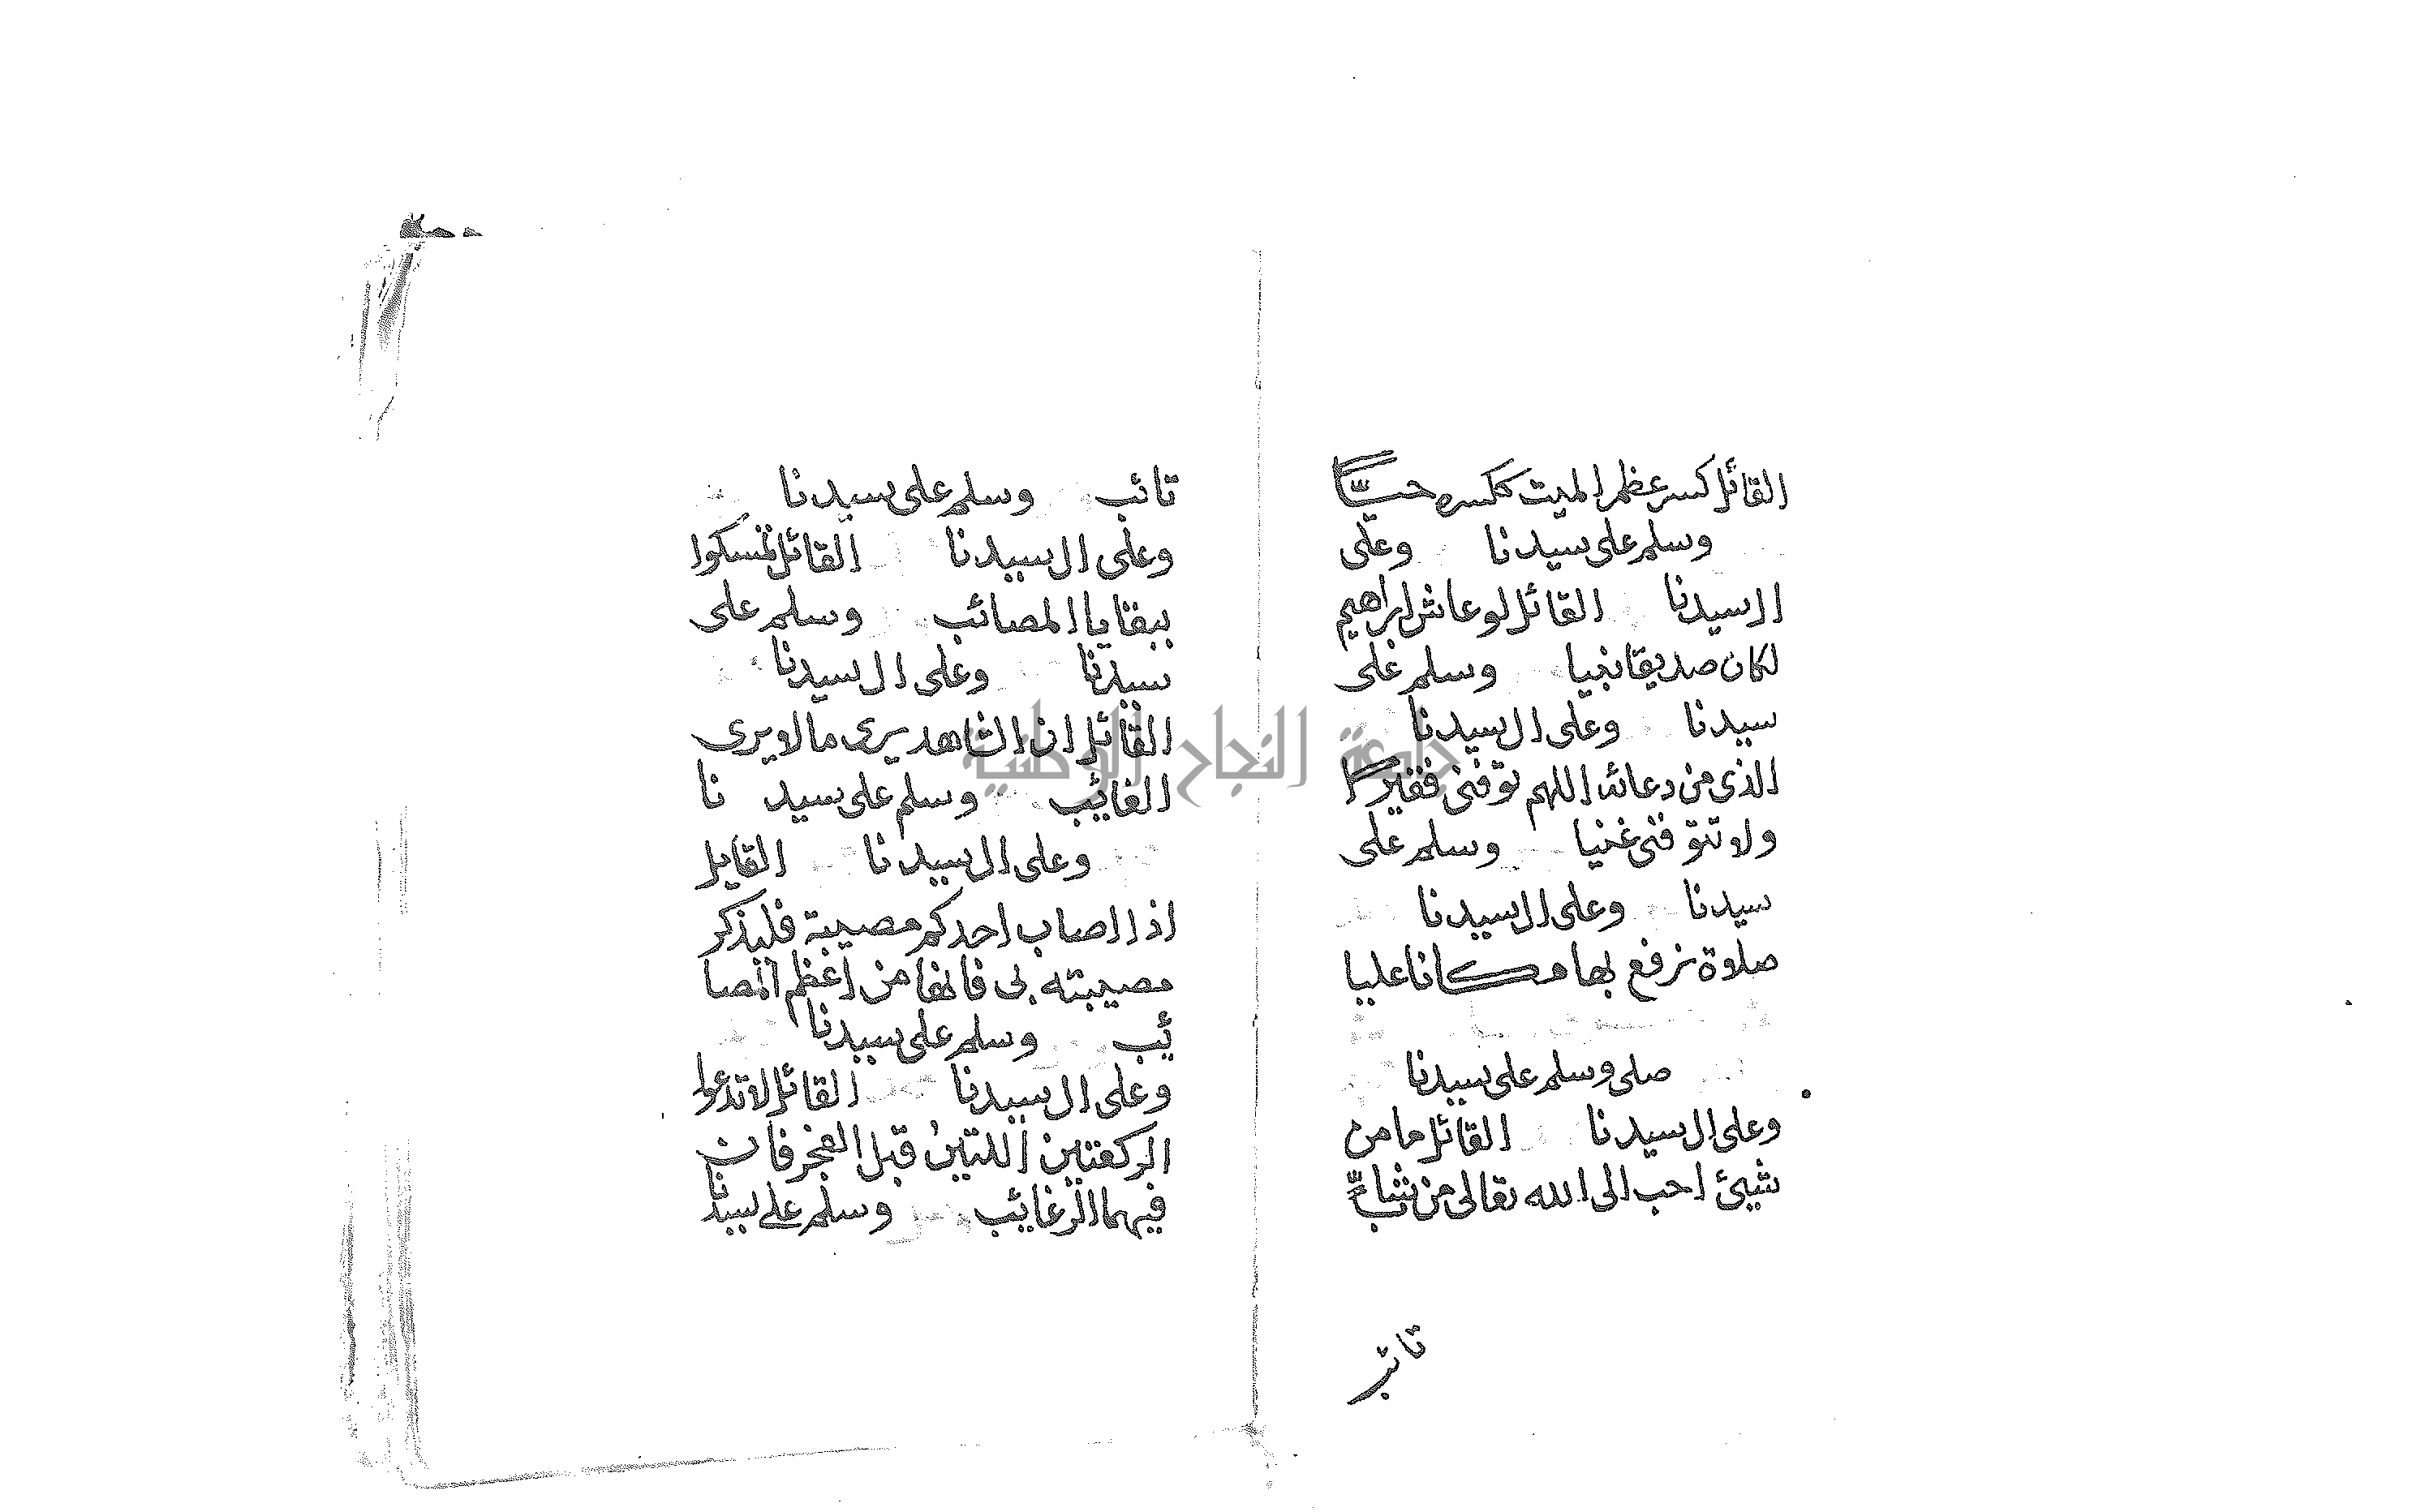 القائل كسر عظم الميت ككسره حيًّا
وسلم على سيدنا وعلى
ال سيدنا القائل لو عاش ابراهيم
لكان صديقا نبيا وسلم على
سيدنا وعلى ال سيدنا
الذى من دعائه اللهم توفنى فقيرًا
ولا تتوفنى غنيا وسلم على
سيدنا وعلى ال سيدنا
صلاة نرفع بها مكانا عليا
صلى وسلم على سيدنا
وعلى ال سيدنا القائل ما من
شيئ احب الى الله تعالى من شابٍّ
تائب
تائب وسلم على سيدنا
وعلى ال سيدنا القائل تمسكوا
ببقايا المصائب وسلم على
سيدنا وعلى ال سيدنا
القائل ان الشاهد يرى ما لا يرى
الغائب وسلم على سيدنا
وعلى ال سيدنا القايل
اذا اصاب احدكم مصيبة فليذكر
مصيبته بى فانها من اعظم المصا
ئب وسلم على سيدنا
وعلى ال سيدنا القائل لا تدعوا
الركعتين اللتين قبل الفجر فان
فيهما الرغائب وسلم على سيدنا
جامعة النجاح الوطنية